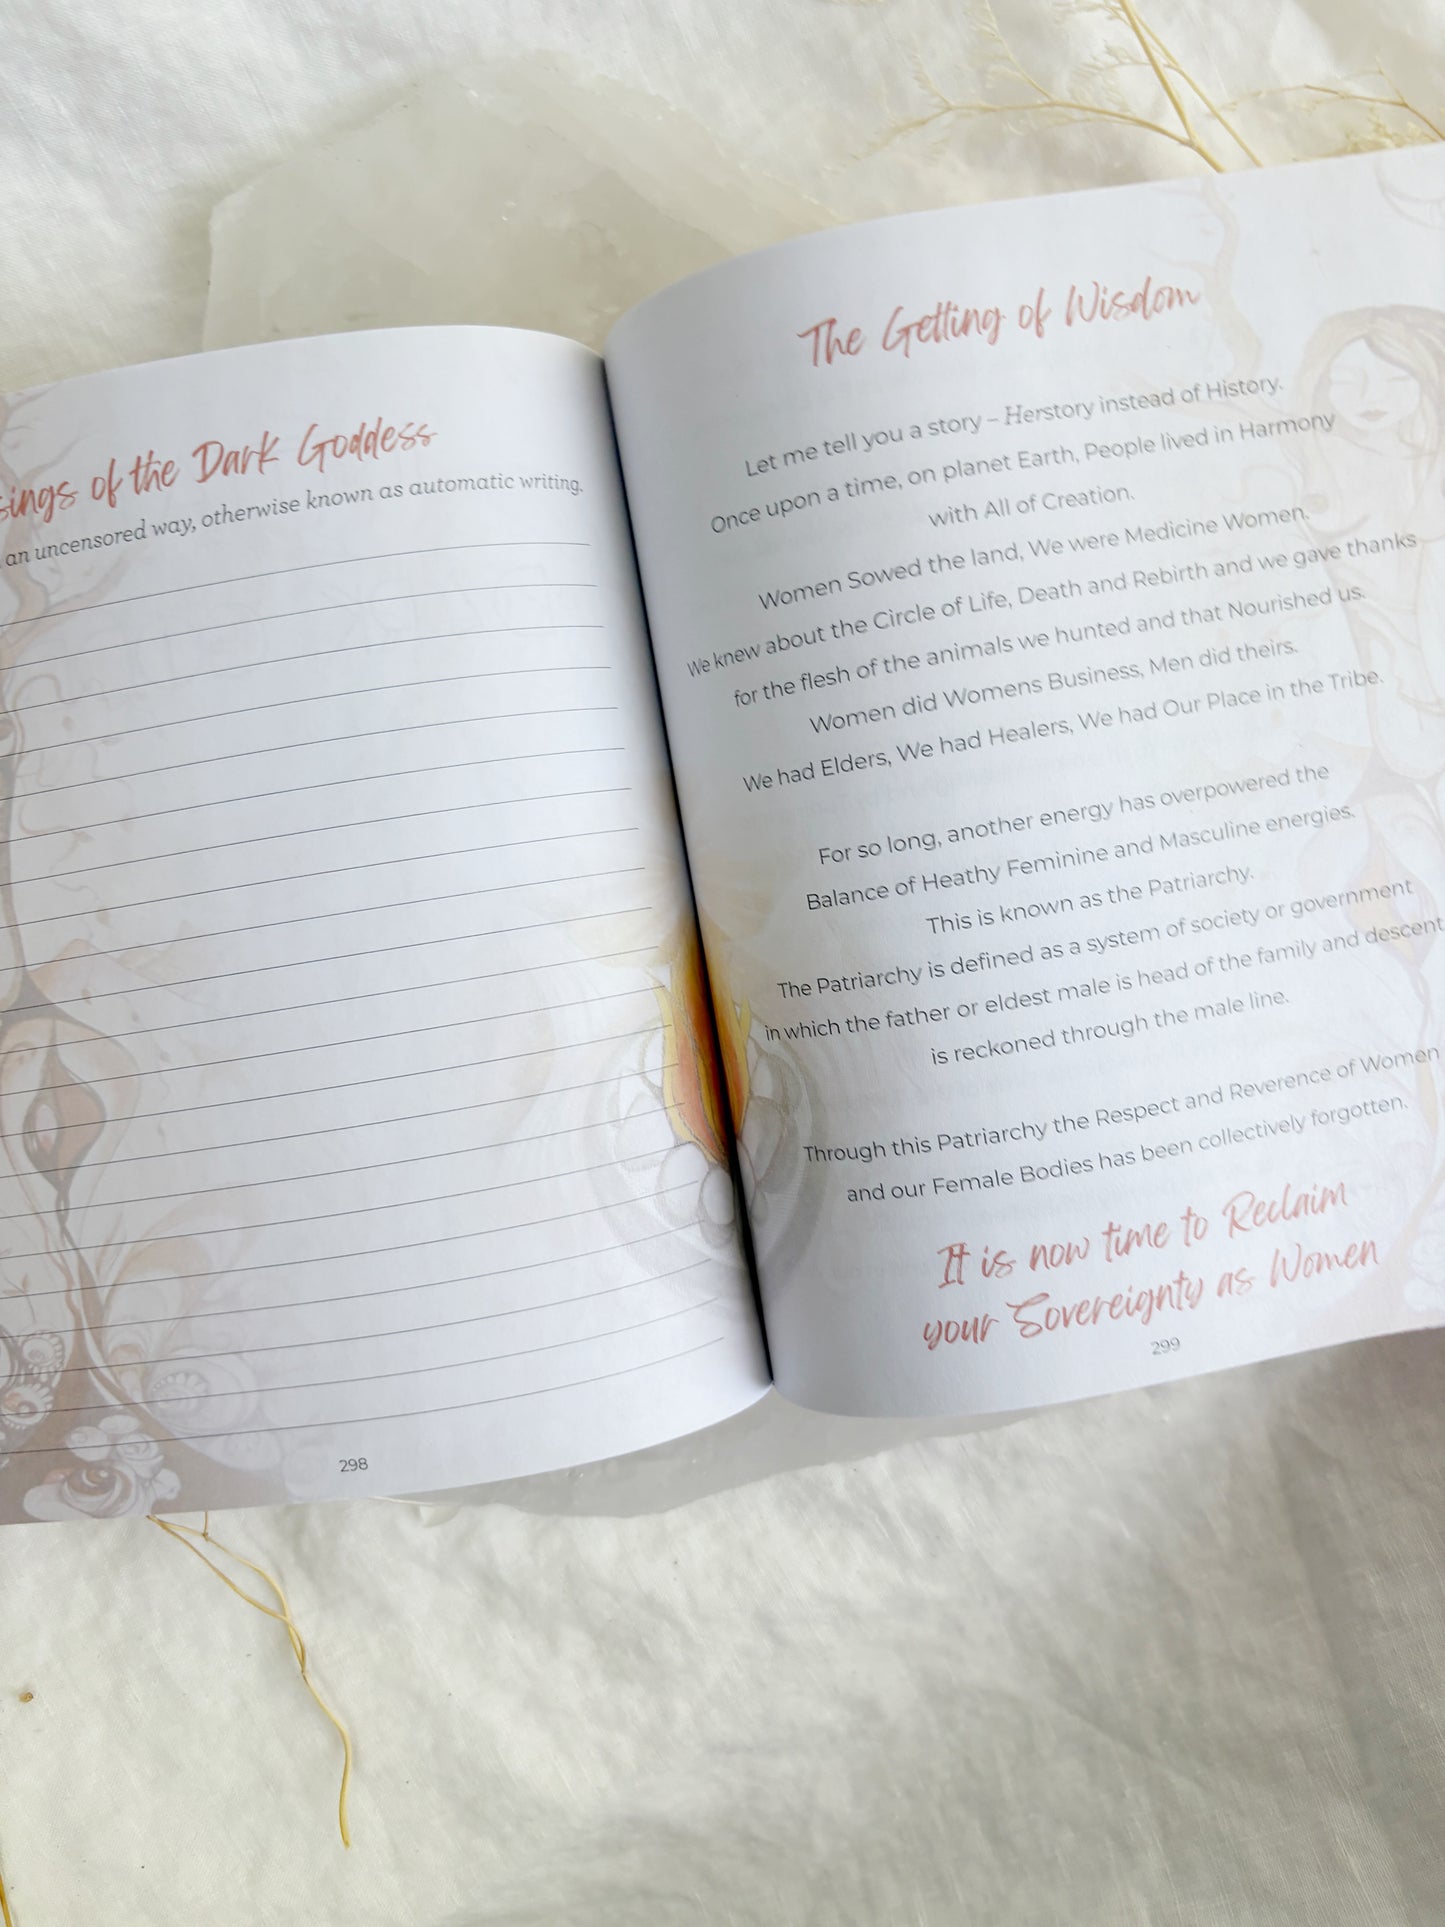 of the Dark Goddess
an uncensored way, otherwise known as automatic writing.
298
The Getting of Wisdom
Let me tell you a story – Herstory instead of History.
Once upon a time, on planet Earth, People lived in Harmony
with All of Creation.
Women Sowed the land, We were Medicine Women.
We knew about the Circle of Life, Death and Rebirth and we gave thanks
for the flesh of the animals we hunted and that Nourished us.
Women did Womens Business, Men did theirs.
We had Elders, We had Healers, We had Our Place in the Tribe.
For so long, another energy has overpowered the
Balance of Heathy Feminine and Masculine energies.
This is known as the Patriarchy.
The Patriarchy is defined as a system of society or government
in which the father or eldest male is head of the family and descent
is reckoned through the male line.
Through this Patriarchy the Respect and Reverence of Women
and our Female Bodies has been collectively forgotten.
It is now time to Reclaim
your Sovereignty as Women
299